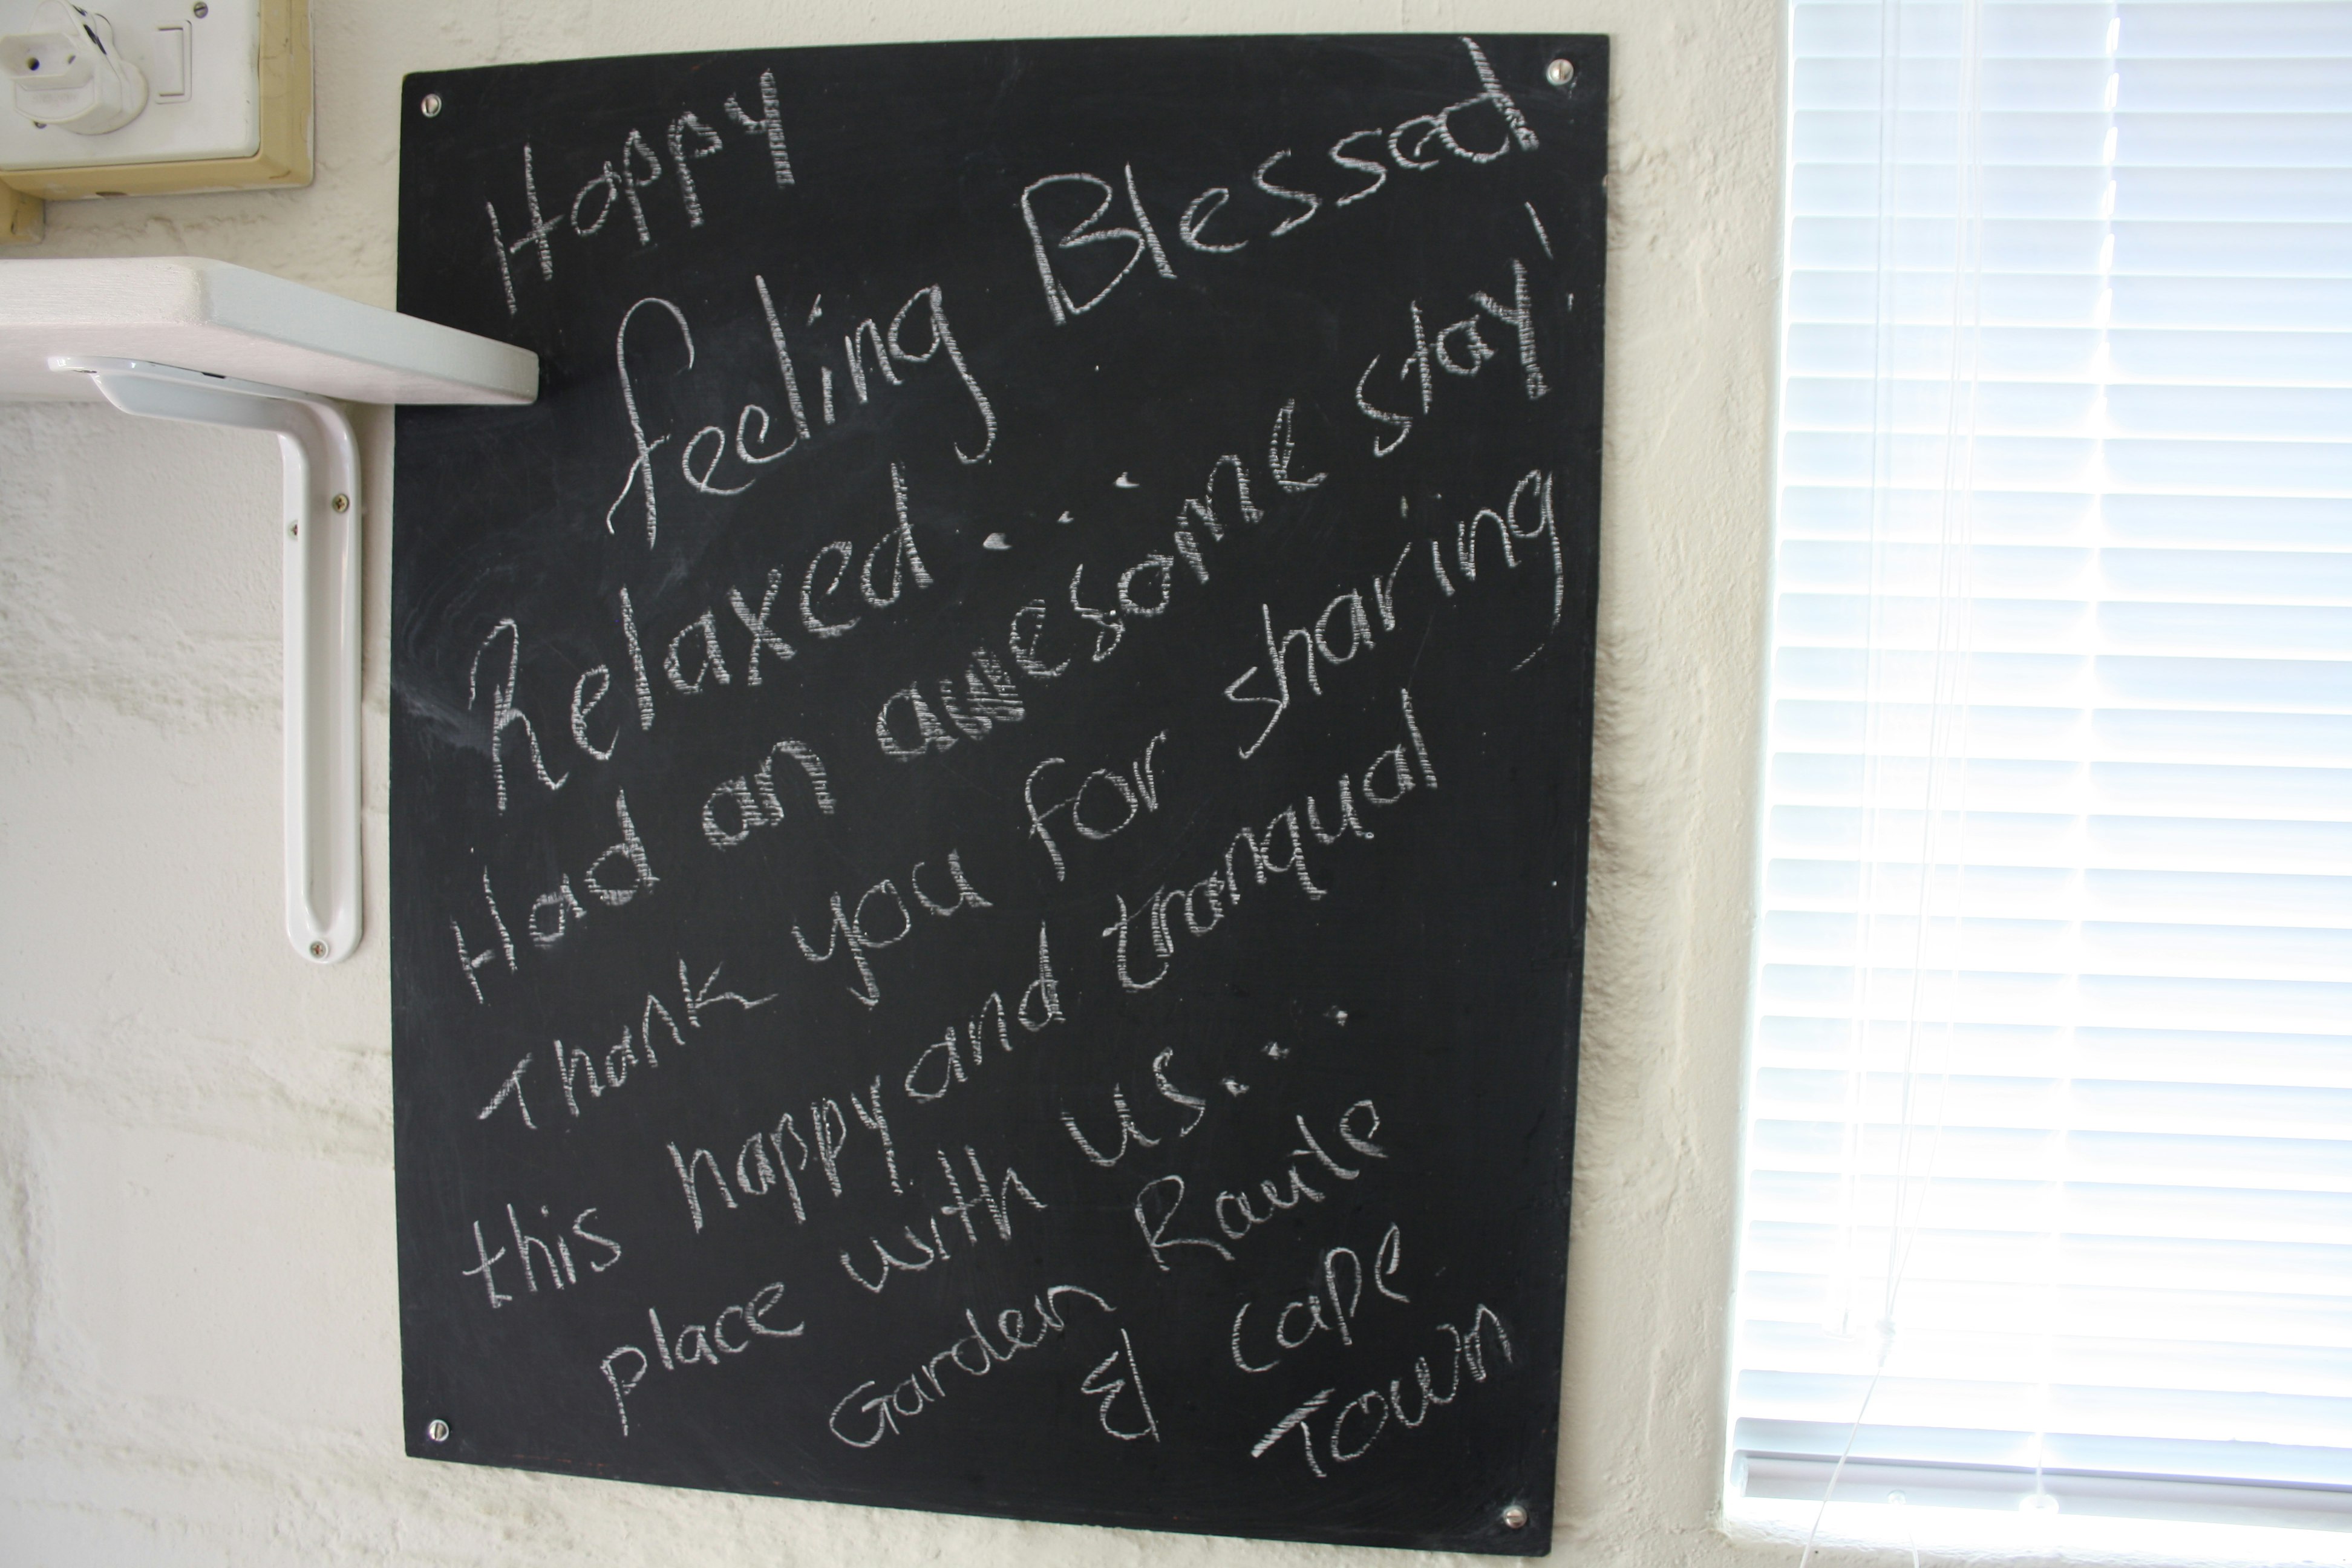 Happy
feeling Blessed
Relaxed...
Had an awesome stay!
Thank you for sharing
this happy and tranqual
place with us...
Garden Raute
& Cape
Town